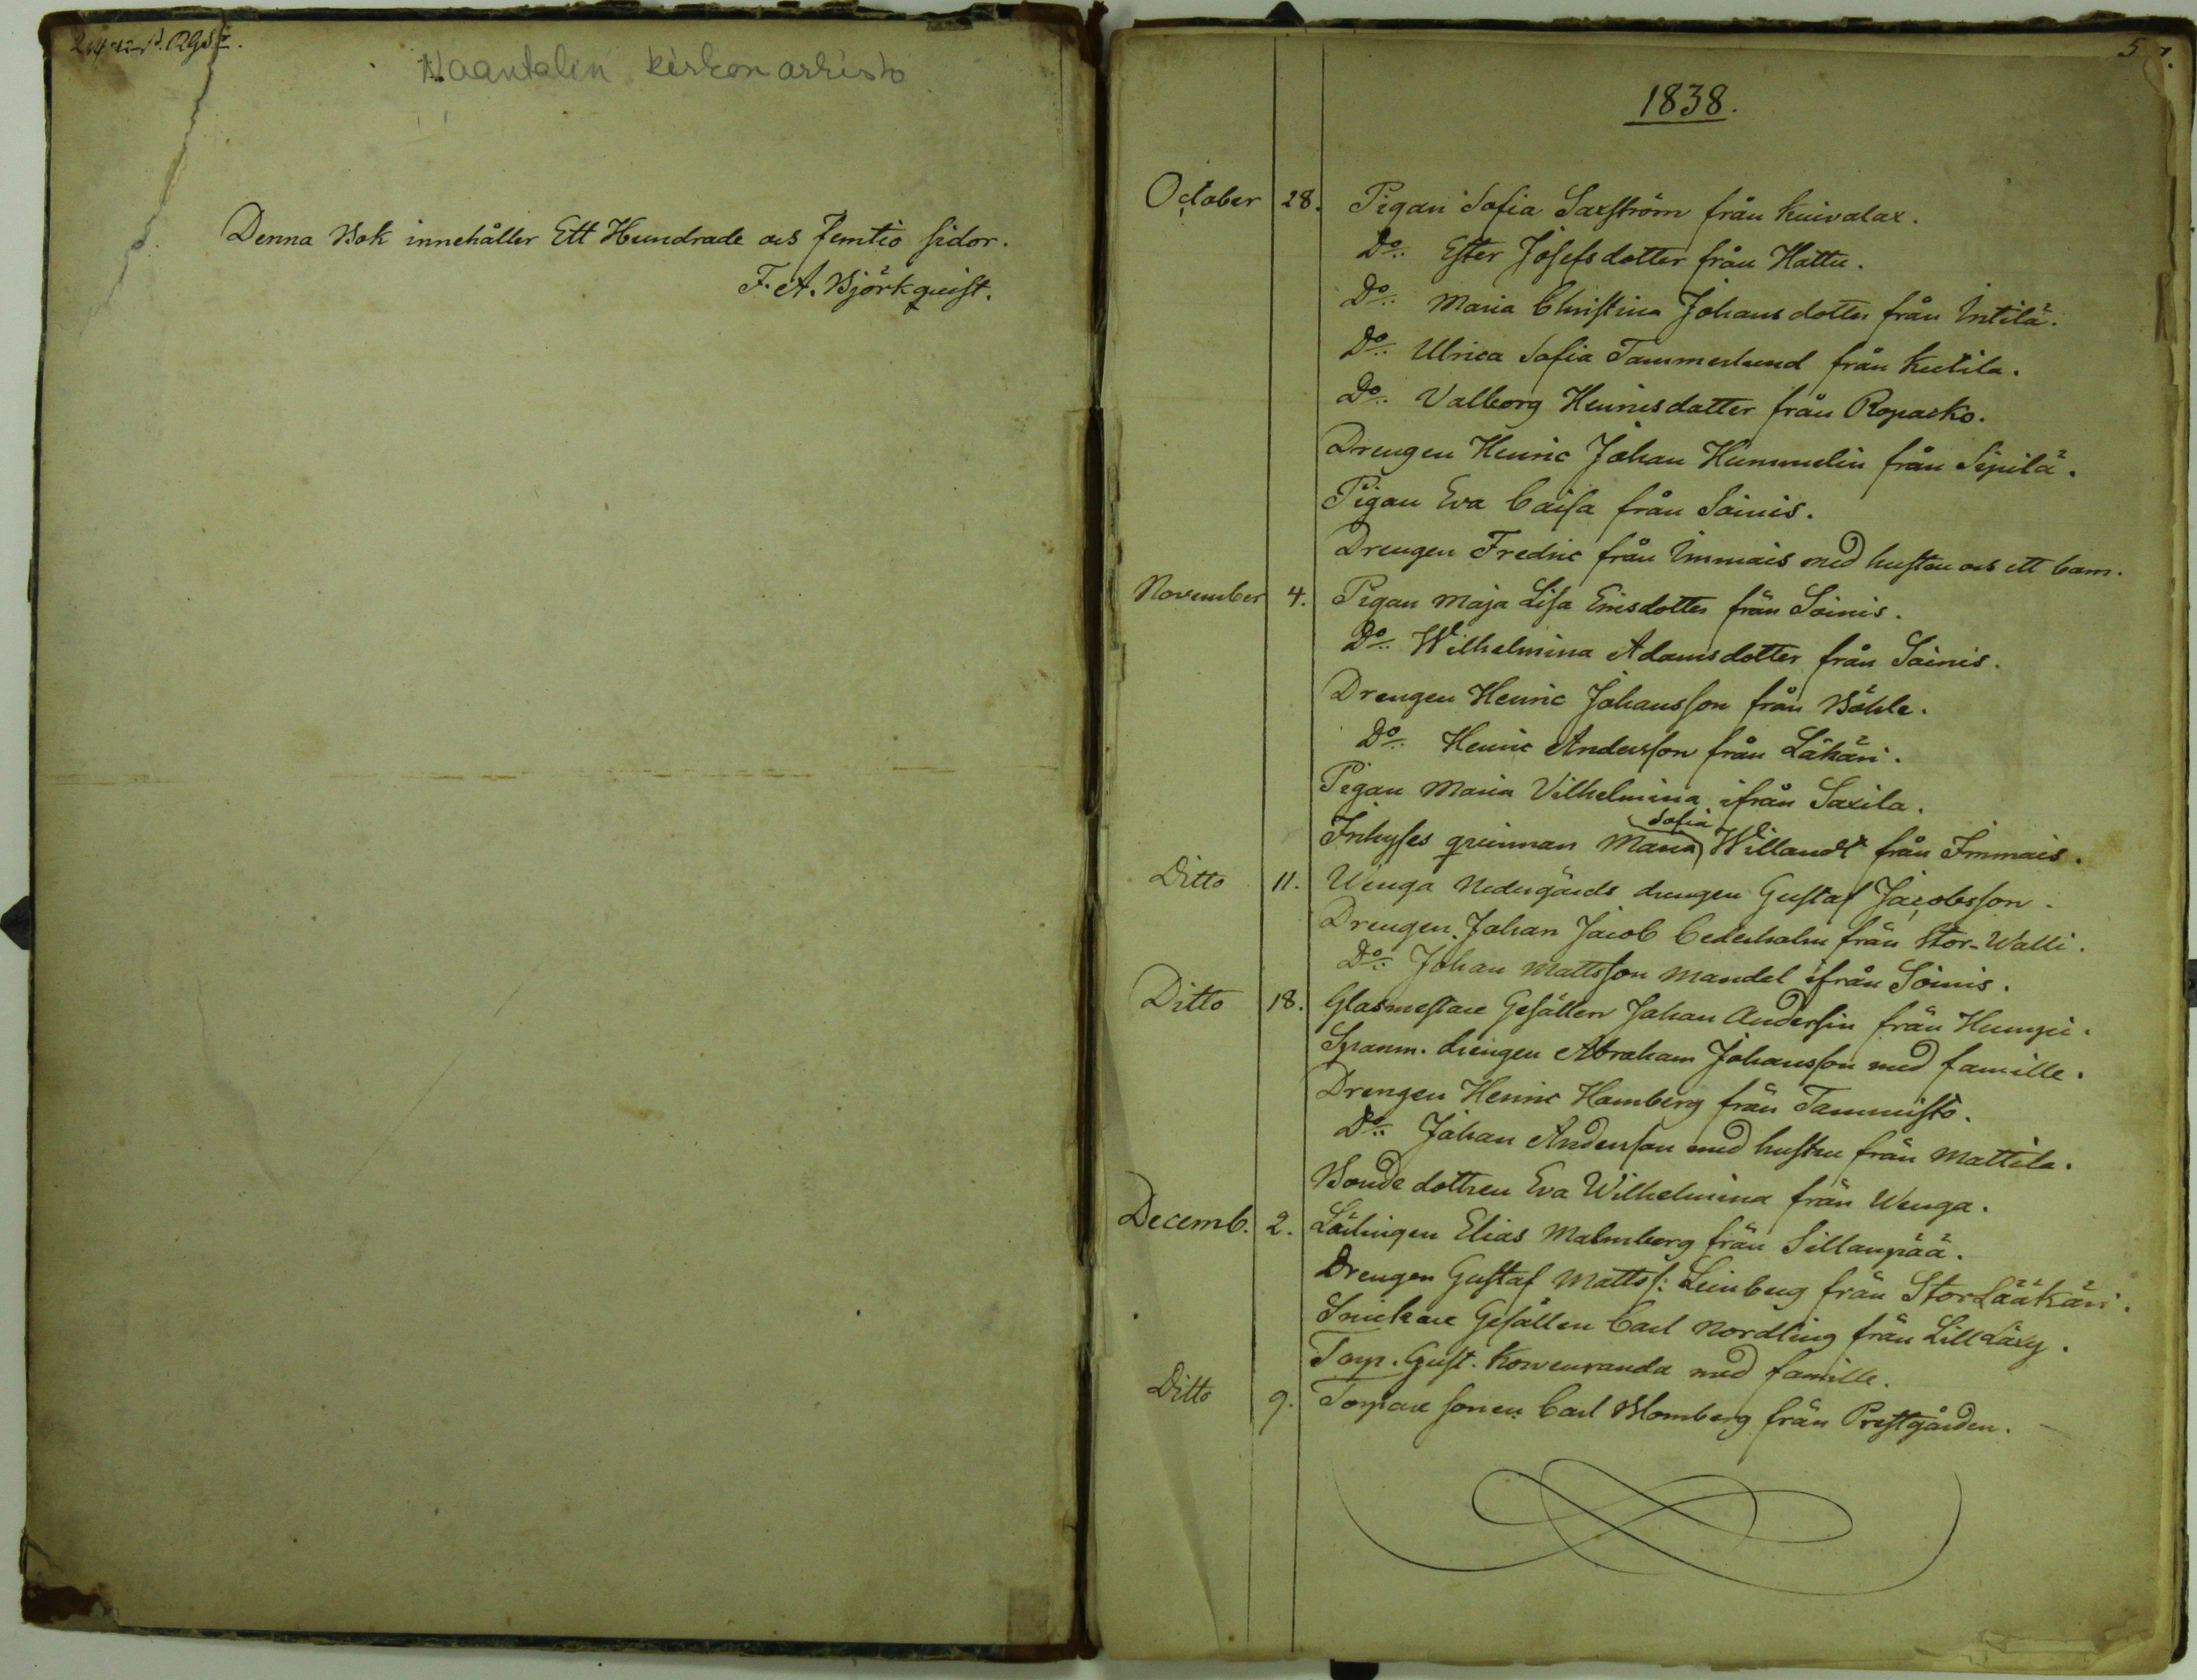 Naantalin kirkon arkisto
Denna Bok innehåller Ett Hundrade och femtio sidor.
F. A. Björkquist.
5
1838.
October 28. Pigan Sofia Saxström från Kuivalax.
Do.. Ester Josefsdotter från Hattu.
Do.. Maria Christina Johansdotter från Intilä.
Do.. Ulrica Sofia Tammerlund från Kutila.
Do.. Valborg Henricsdotter från Ropacko.
Drengen Henric Johan Hummelin från Sipilä.
Pigan Eva Caisa från Soinis.
Drengen Fredric från Immais med hustru och ett barn.
November 4. Pigan Maja Lisa Ericsdotter från Soinis.
Do.. Wilhelmina Adamsdotter från Soinis.
Drengen Henric Johansson från Böhle.
Do.. Henric Andersson från Läkäri.
Pigan Maria Vilhelmina ifrån Saxila.
Inhyses qvinnan Maria Sofia Willandt från Immais.
Ditto 11. Wenga Nedergårds drengen Gustaf Jacobsson.
Drengen Johan Jacob Cederholm från Stor-Walli.
Do.. Johan Mattsson Mandel ifrån Soinis.
Ditto 18. Glasmestare Gesällen Johan Andersin från Humpi.
Spanm. drengen Abraham Johansson med famille.
Drengen Henric Hamberg från Tammisto.
Do.. Johan Andersson med hustru från Mattila.
Bonde dottren Eva Wilhelmina från Wenga.
Decemb. 2. Lärlingen Elias Malmberg från Sillanpää.
Drengen Gustaf Matts s: Leinberg från Stor Lääkäri.
Snickare Gesällen Carl Nordling från Lill
Torp. Gust. med famille.
Ditto 9. Torpare sonen Carl Blomberg från Prestgården.